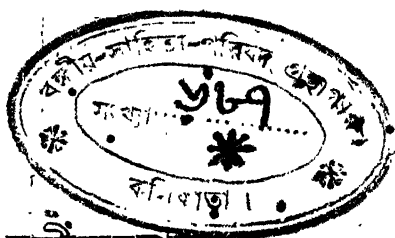 বঙ্গীয়-সাহিত্য-পরিষদ্ গ্রন্থাগার
সংখ্যা......৬৮৭......
কলিকাতা।